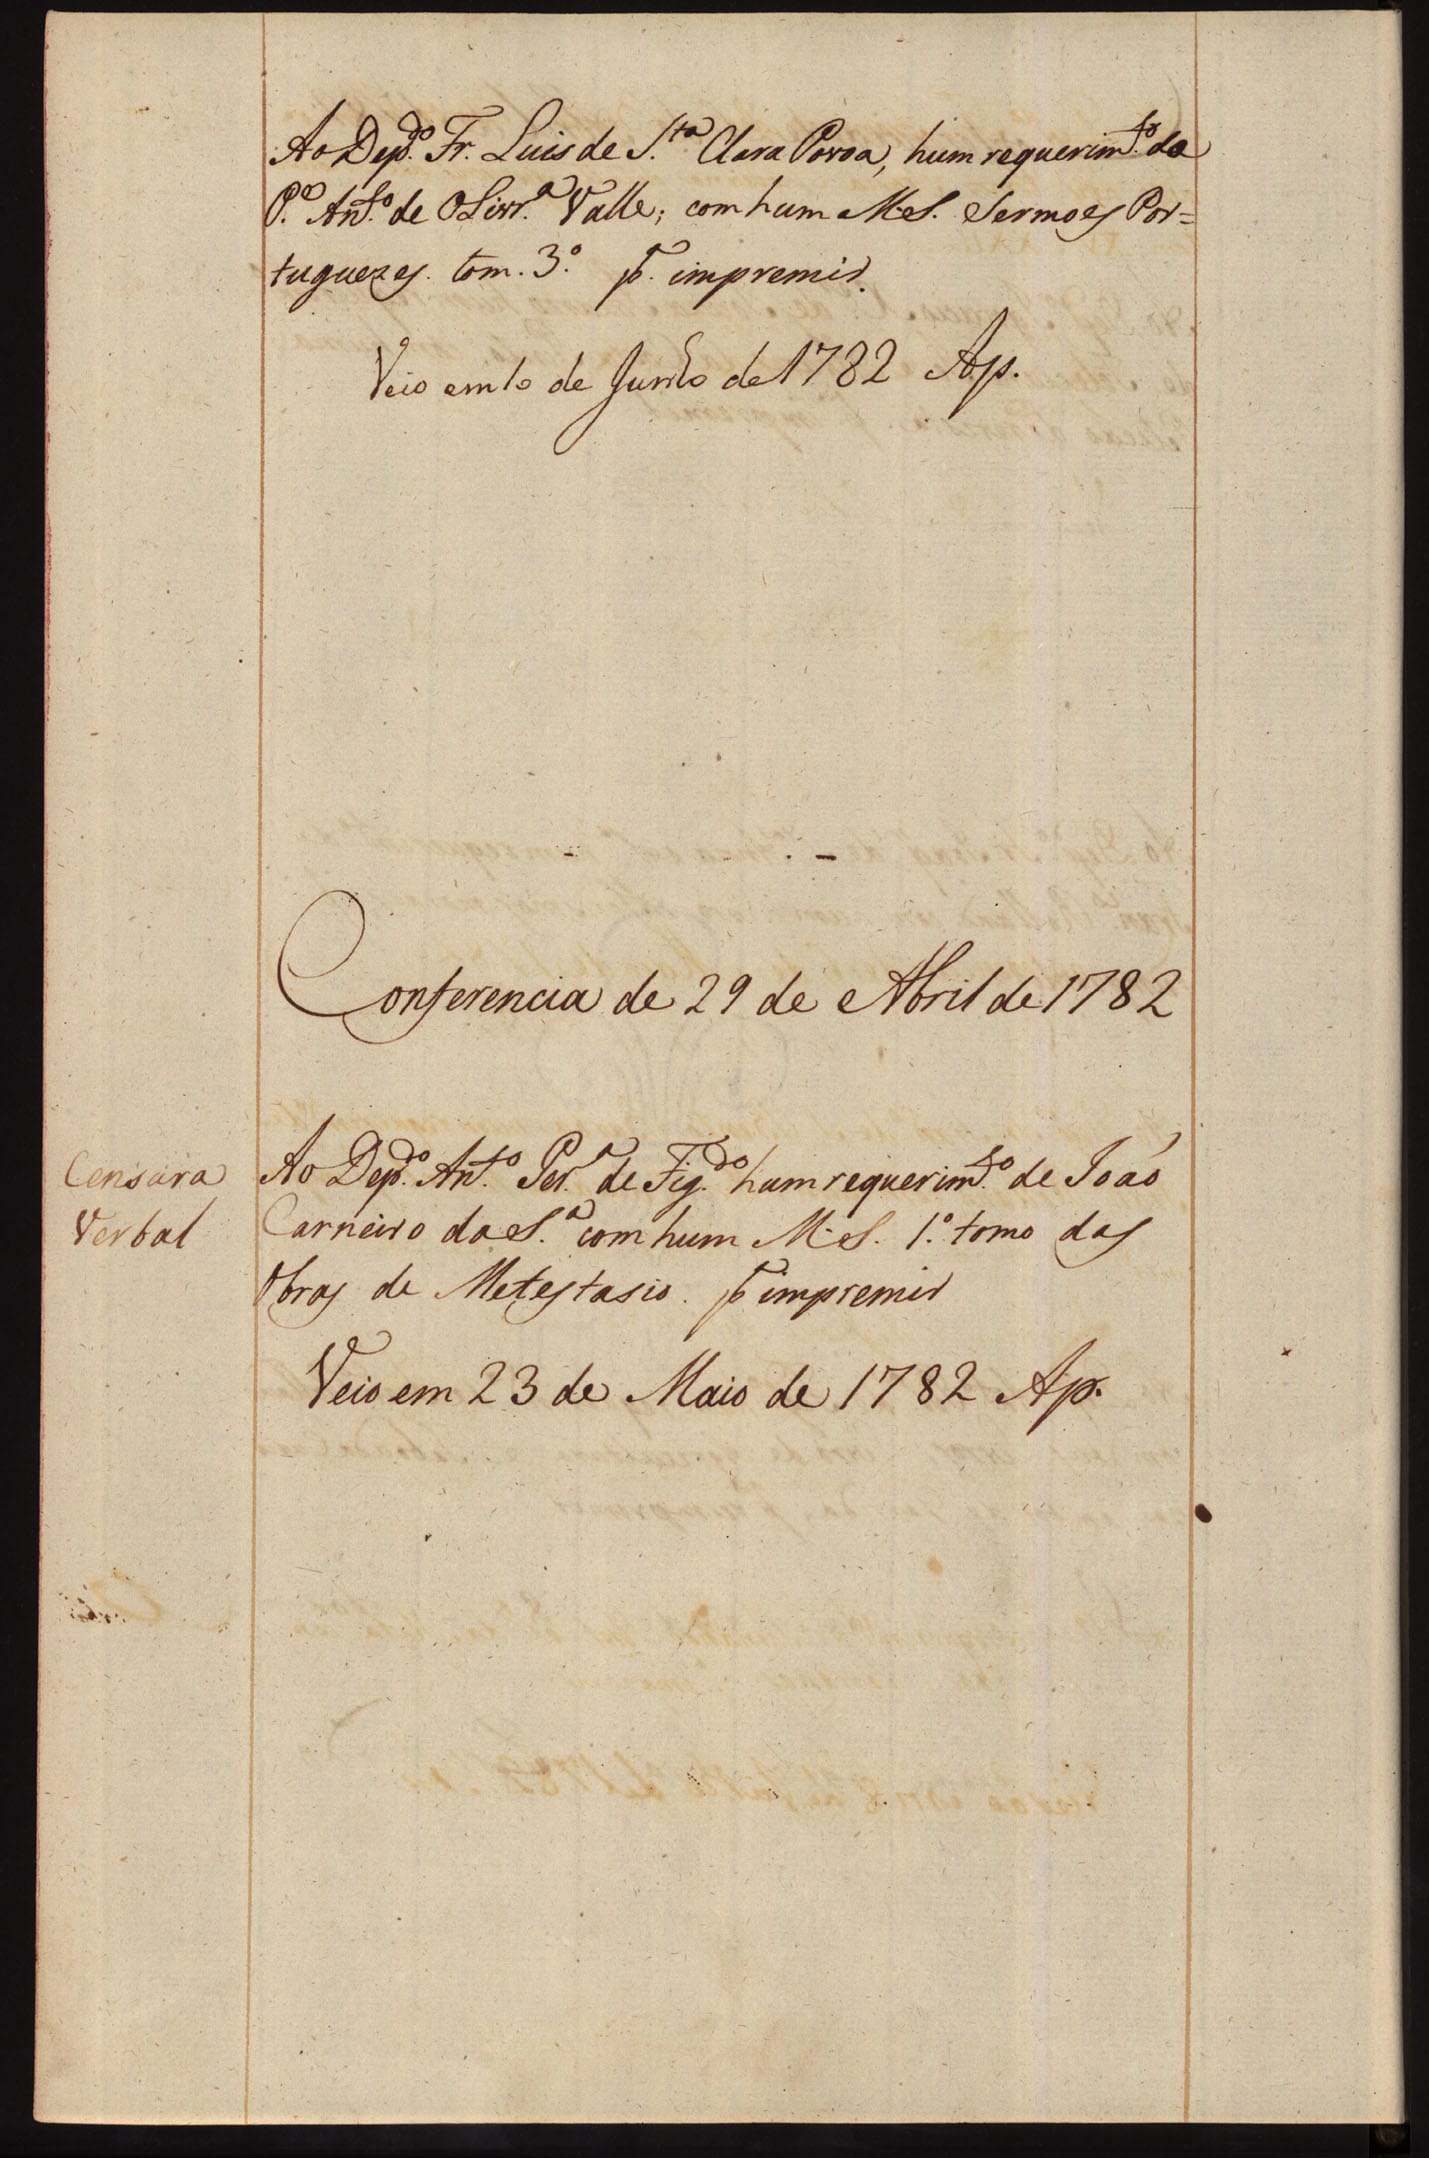 Ao Dep.do Fr. Luis de S.ta Clara Povoa, hum requerim.to do
P.e Ant.o de Olivr.a Valle; com hum M.S. Sermoes Por=
tuguezes. tom. 3.o p.a impremir.
Veio em 10 de Junho de 1782 Ap.
Conferencia de 29 de Abril de 1782
Censura
Verbal
Ao Dep.do Ant.o Per.a de Fig.do hum requerim.to de Joáo
Carneiro da S.a com hum M.S. 1.o tomo das
Obras de Metestasio. p.a impremir
Veio em 23 de Maio de 1782 Ap.